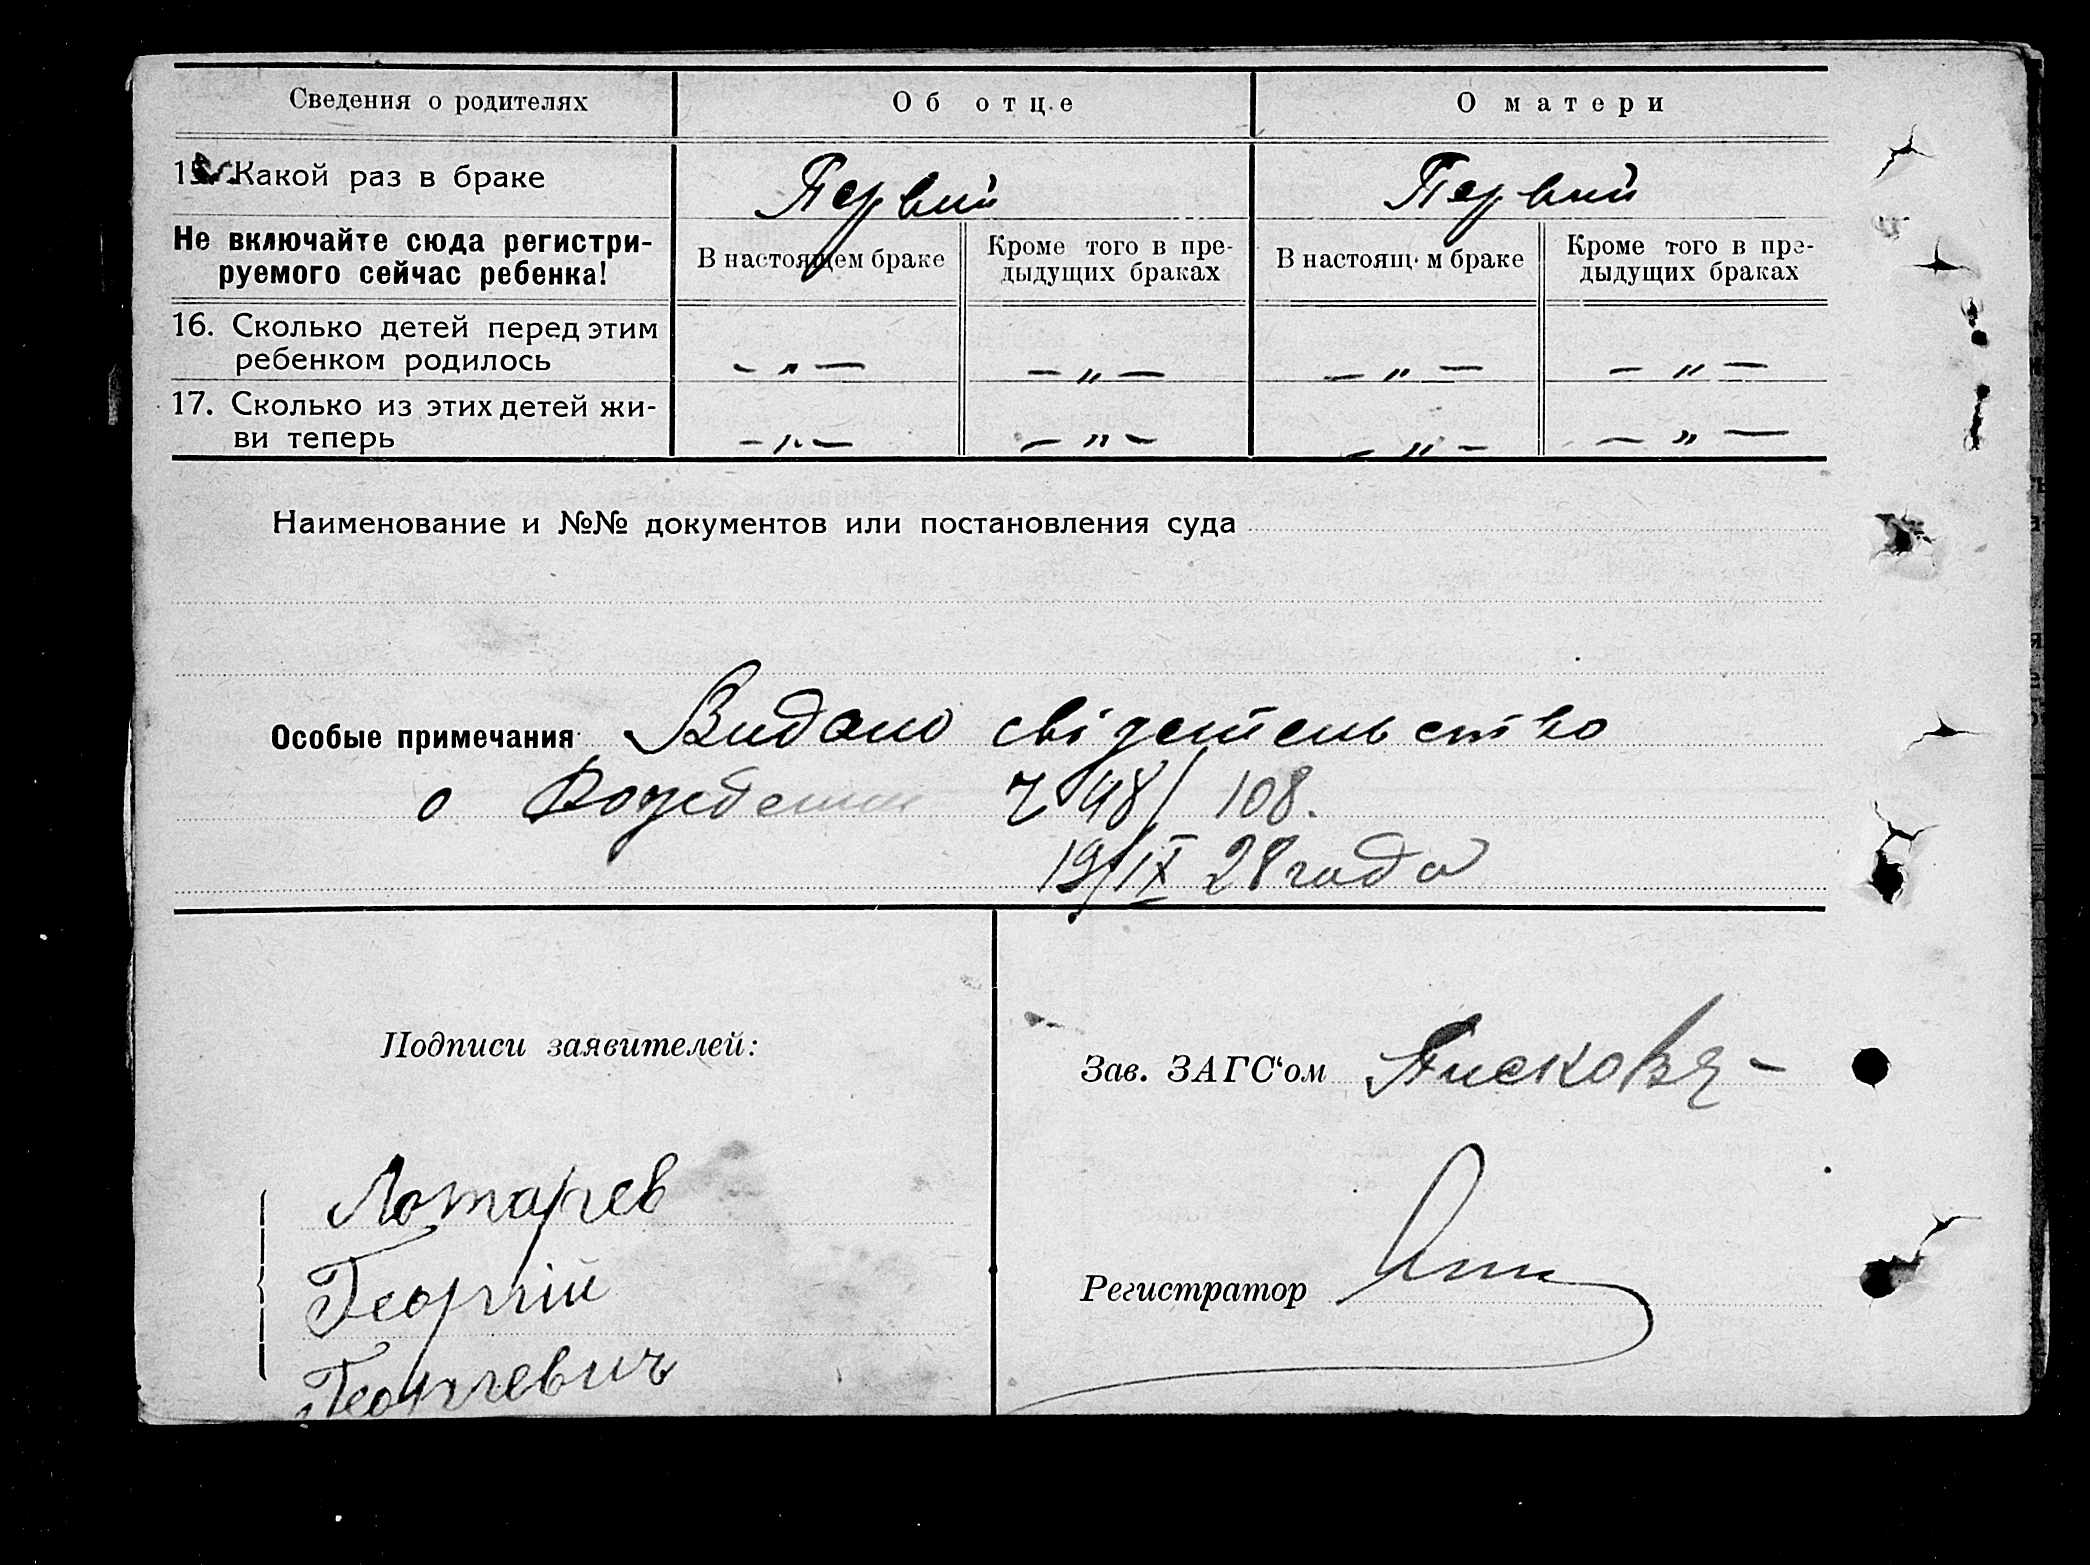 Сведения о родителях Об отце О матери
15. Какой раз в браке Первий Первий
Не включайте сюда регистри-
руемого сейчас ребенка!
В настоящем браке Кроме того в пре-
дыдущих браках
В настоящ м браке Кроме того в пре-
дыдущих браках
16. Сколько детей перед этим
ребенком родилось — „ — — „ — — „ — — „ —
17. Сколько из этих детей жи-
ви теперь — „ — — „ — — „ — — „ —
Наименование и №№ документов или постановления суда
Особые примечания Видано свідетельство
о ч 48/108.
19/IX 28 года
Подписи заявителей:
Зав. ЗАГС‘ом
Лотарев
Георгій
Георгевич
Регистратор